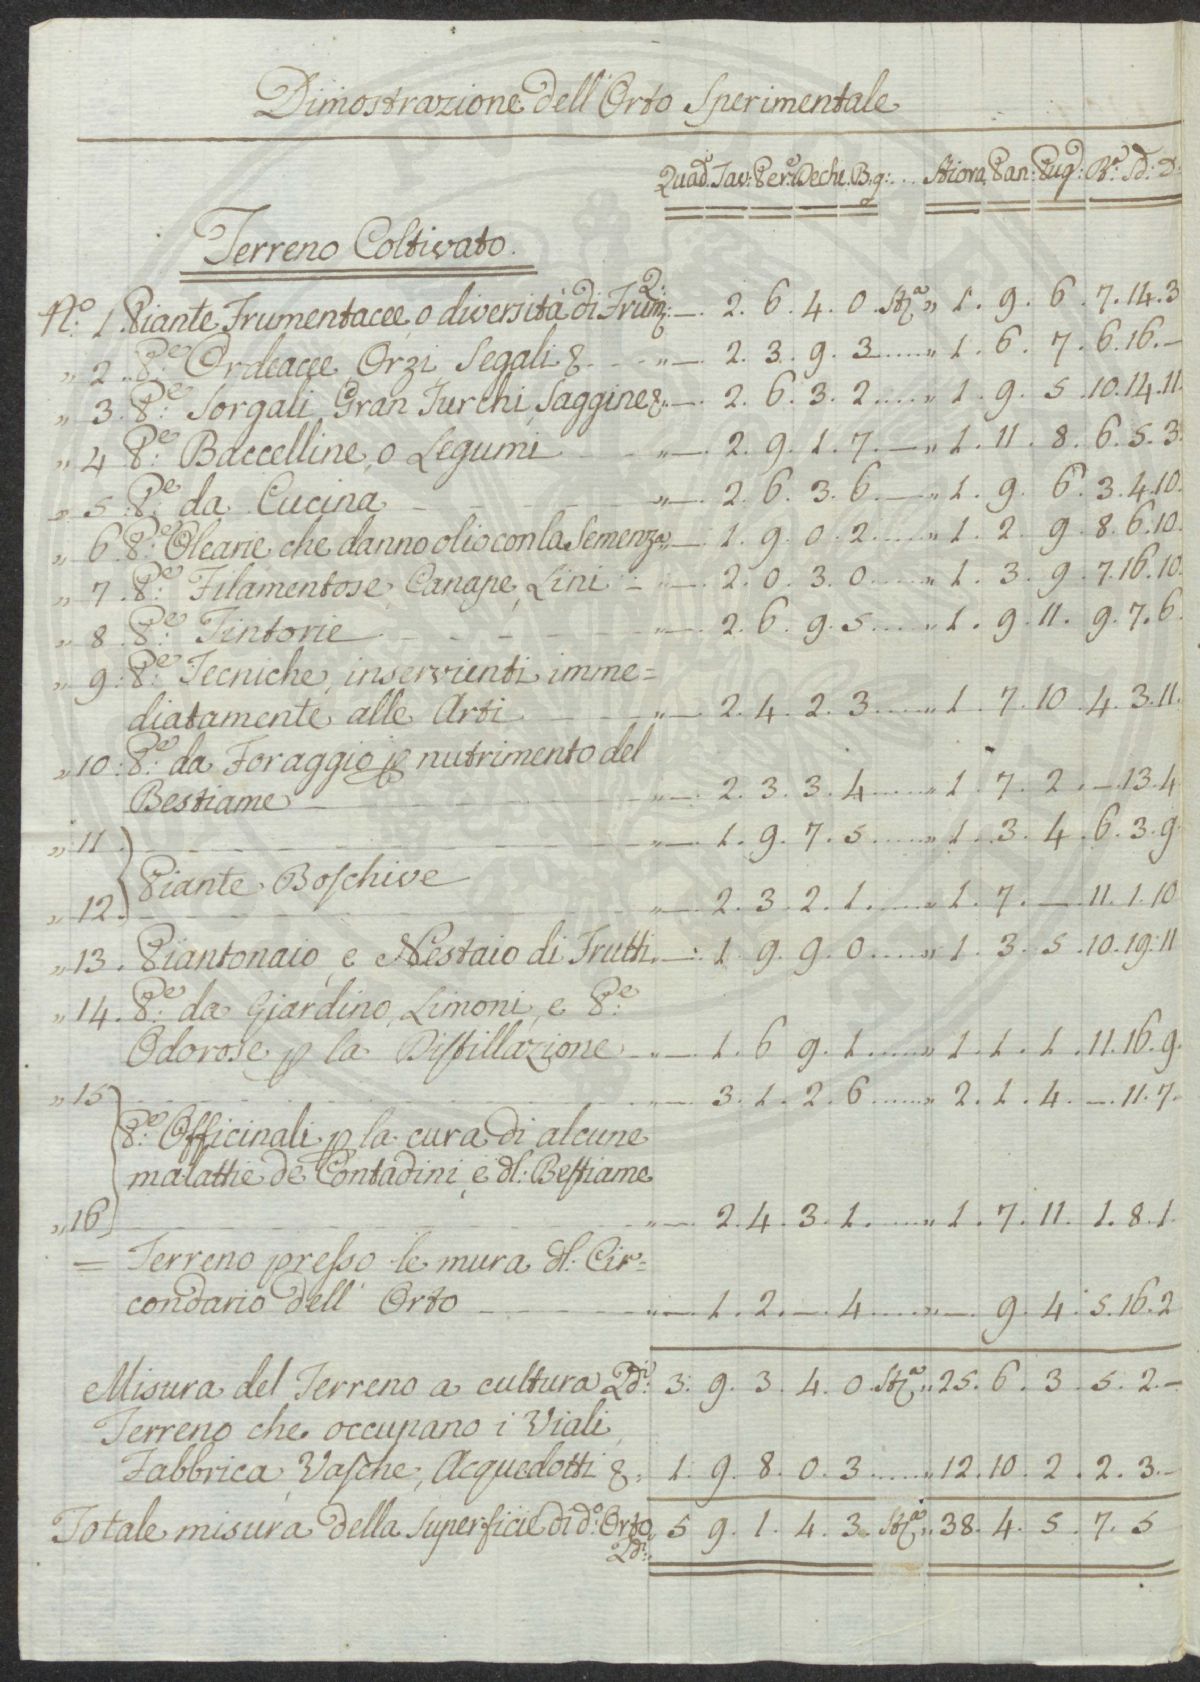 Dimostrazione dell'Orto Sperimentale
Quad.ⁱ Tav: Per.ᵉ Dech: B.q: .... Stiora Pan: Pug.ᵈ: B.ᵃ: Sd: D:
Terreno Coltivato.
N.º 1. Piante Frumentacee, o diversità di Frum: Q: „ — . 2. 6. 4. 0 St.ᵃ „ 1. 9. 6. 7. 14. 3
„ 2. P.ᵉ Ordeacee Orzi Segali &. - - - „ — . 2. 3. 9. 3 ..... „ 1. 6. 7. 6. 16. —
„ 3. P.ᵉ Sorgali, Gran Turchi, Saggine &. „ — . 2. 6. 3. 2 ..... „ 1. 9. 5. 10. 14. 11.
„ 4 P.ᵉ Baccelline, o Legumi - - - „ — . 2. 9. 1. 7. — „ 1. 11. 8. 6. 5. 3
„ 5 P.ᵉ da Cucina - - - „ — . 2. 6. 3. 6. — „ 1. 9. 6. 3. 4. 10.
„ 6 P.ᵉ Olearie che danno olio con la Semenza „ — . 1. 9. 0. 2 ..... „ 1. 2. 9. 8. 6. 10.
„ 7. P.ᵉ Filamentose, Canape, Lini - - „ — . 2. 0. 3. 0 ..... „ 1. 3. 9. 7. 16. 10.
„ 8. P.ᵉ Tintorie - - - „ — . 2. 6. 9. 5 ..... „ 1. 9. 11. 9. 7. 6
„ 9: P.ᵉ Tecniche, inservienti imme=
diatamente alle Arti - - - „ — . 2. 4. 2. 3 ..... „ 1. 7. 10. 4. 3. 11.
„ 10: P.ᵉ da Foraggio p nutrimento del
Bestiame - - - „ — . 2. 3. 3. 4 ..... „ 1. 7. 2. — 13. 4
„ 11 - - - „ — . 1. 9. 7. 5 ..... „ 1. 3. 4. 6. 3. 9
Piante Boschive
„ 12. - - - „ — . 2. 3. 2. 1 ..... „ 1. 7. — . 11. 1. 10
„ 13. Piantonaio e Nestaio di Frutti „ — : 1. 9. 9. 0 ..... „ 1. 3. 5. 10. 19. 11
„ 14. P.ᵉ da Giardino, Limoni, e P.ᵉ
Odorose p la Distillazione - - „ — . 1. 6 9. 1 ..... „ 1. 1. 1. 11. 16. 9.
„ 15 - - - „ — . 3. 1. 2. 6 ..... „ 2. 1. 4. — . 11. 7.
P.ᵉ Officinali p la cura di alcune
malattie de Contadini, e dl: Bestiame
„ 16 - - - „ — . 2. 4. 3. 1. ..... „ 1. 7. 11. 1. 8. 1.
= Terreno presso le mura dl: Cir=
condario dell' Orto - - - „ — . 1. 2. — . 4 ..... „ — . 9. 4. 5. 16. 2
Misura del Terreno a cultura Qd.ⁱ: 3. 9. 3. 4. 0 St.ᵃ „ 25. 6. 3. 5. 2. —
Terreno che occupano i Viali,
Fabbrica, Vasche, Acquedotti &. 1. 9. 8. 0. 3 ..... „ 12. 10. 2. 2. 3. —
Totale misura della Superficie di d.º Orto Qd.ⁱ: „ 5 9. 1. 4. 3 St.ᵃ „ 38. 4. 5 7. 5